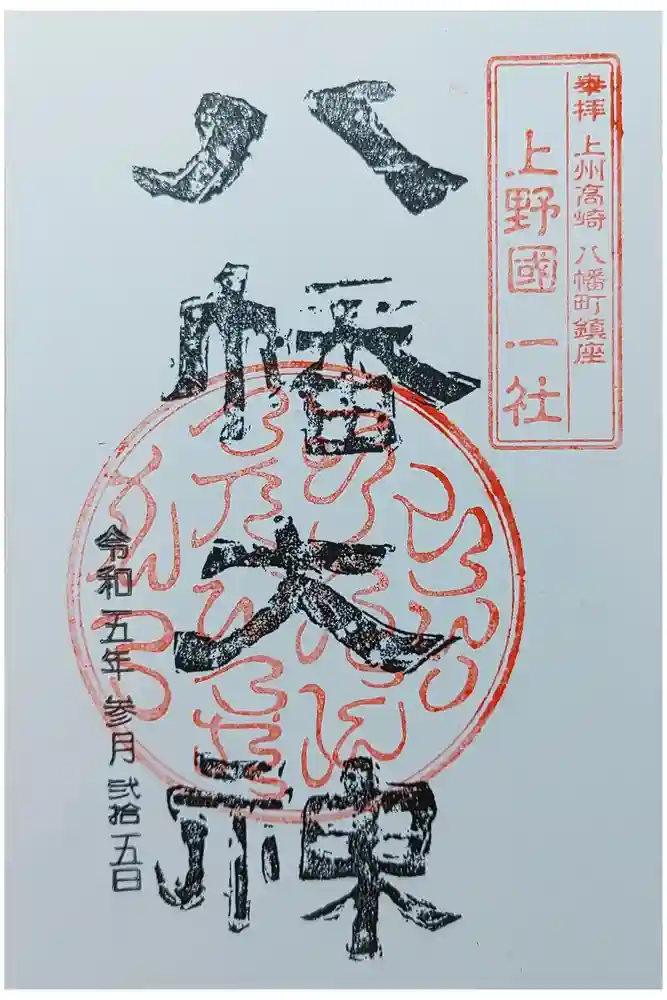 奉拝 上州高崎 八幡町鎮座
上野國一社
八幡大神
令和五年参月弐拾五日